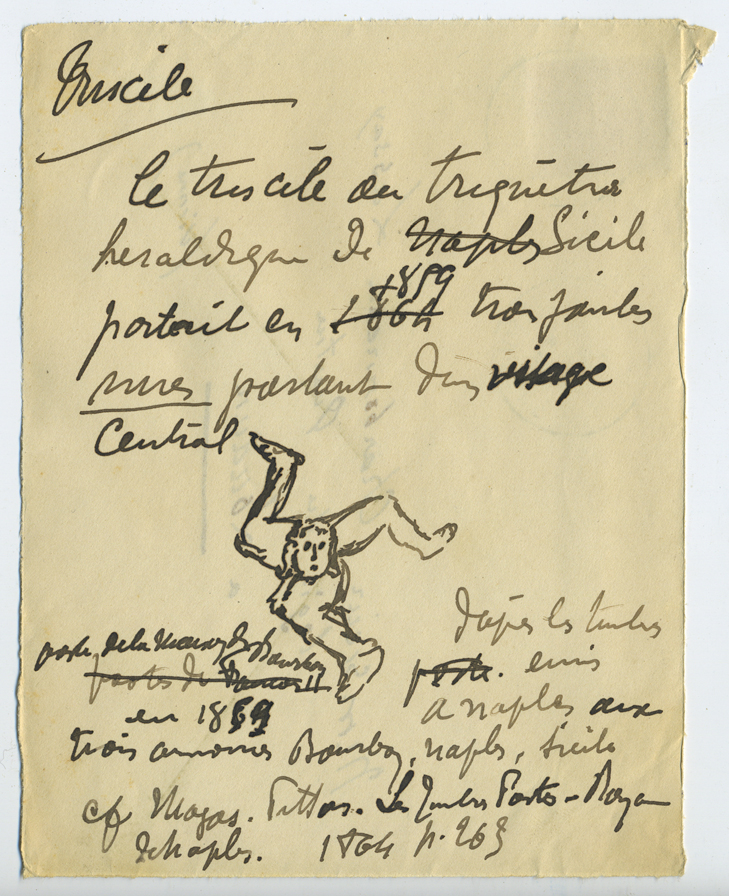 Triscèle
le triscèle ou triquètra
heraldique de Naples Sicile
1859
portait en 1864 trois jambes
nues partant d'un visage
Central
d'après les timbres
poste de la Maison de Bourbon
postes de
poste. émis
a Naples aux
en 1859
trois armoiries Bourbon, Naples, Sicile
cf Magas. Pittor. Les Timbres Postes - Royau
de Naples. 1864 p. 263